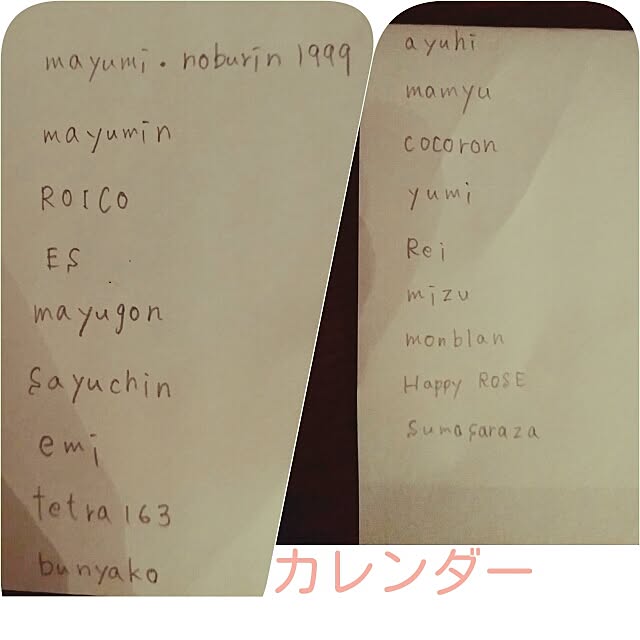 mayumi・noburin 1999
mayumin
ROICO
ES
mayugon
sayuchin
emi
tetra163
bunyako
ayuhi
mamyu
cocoron
yumi
Rei
mizu
monblan
Happy ROSE
sumasaraza
カレンダー